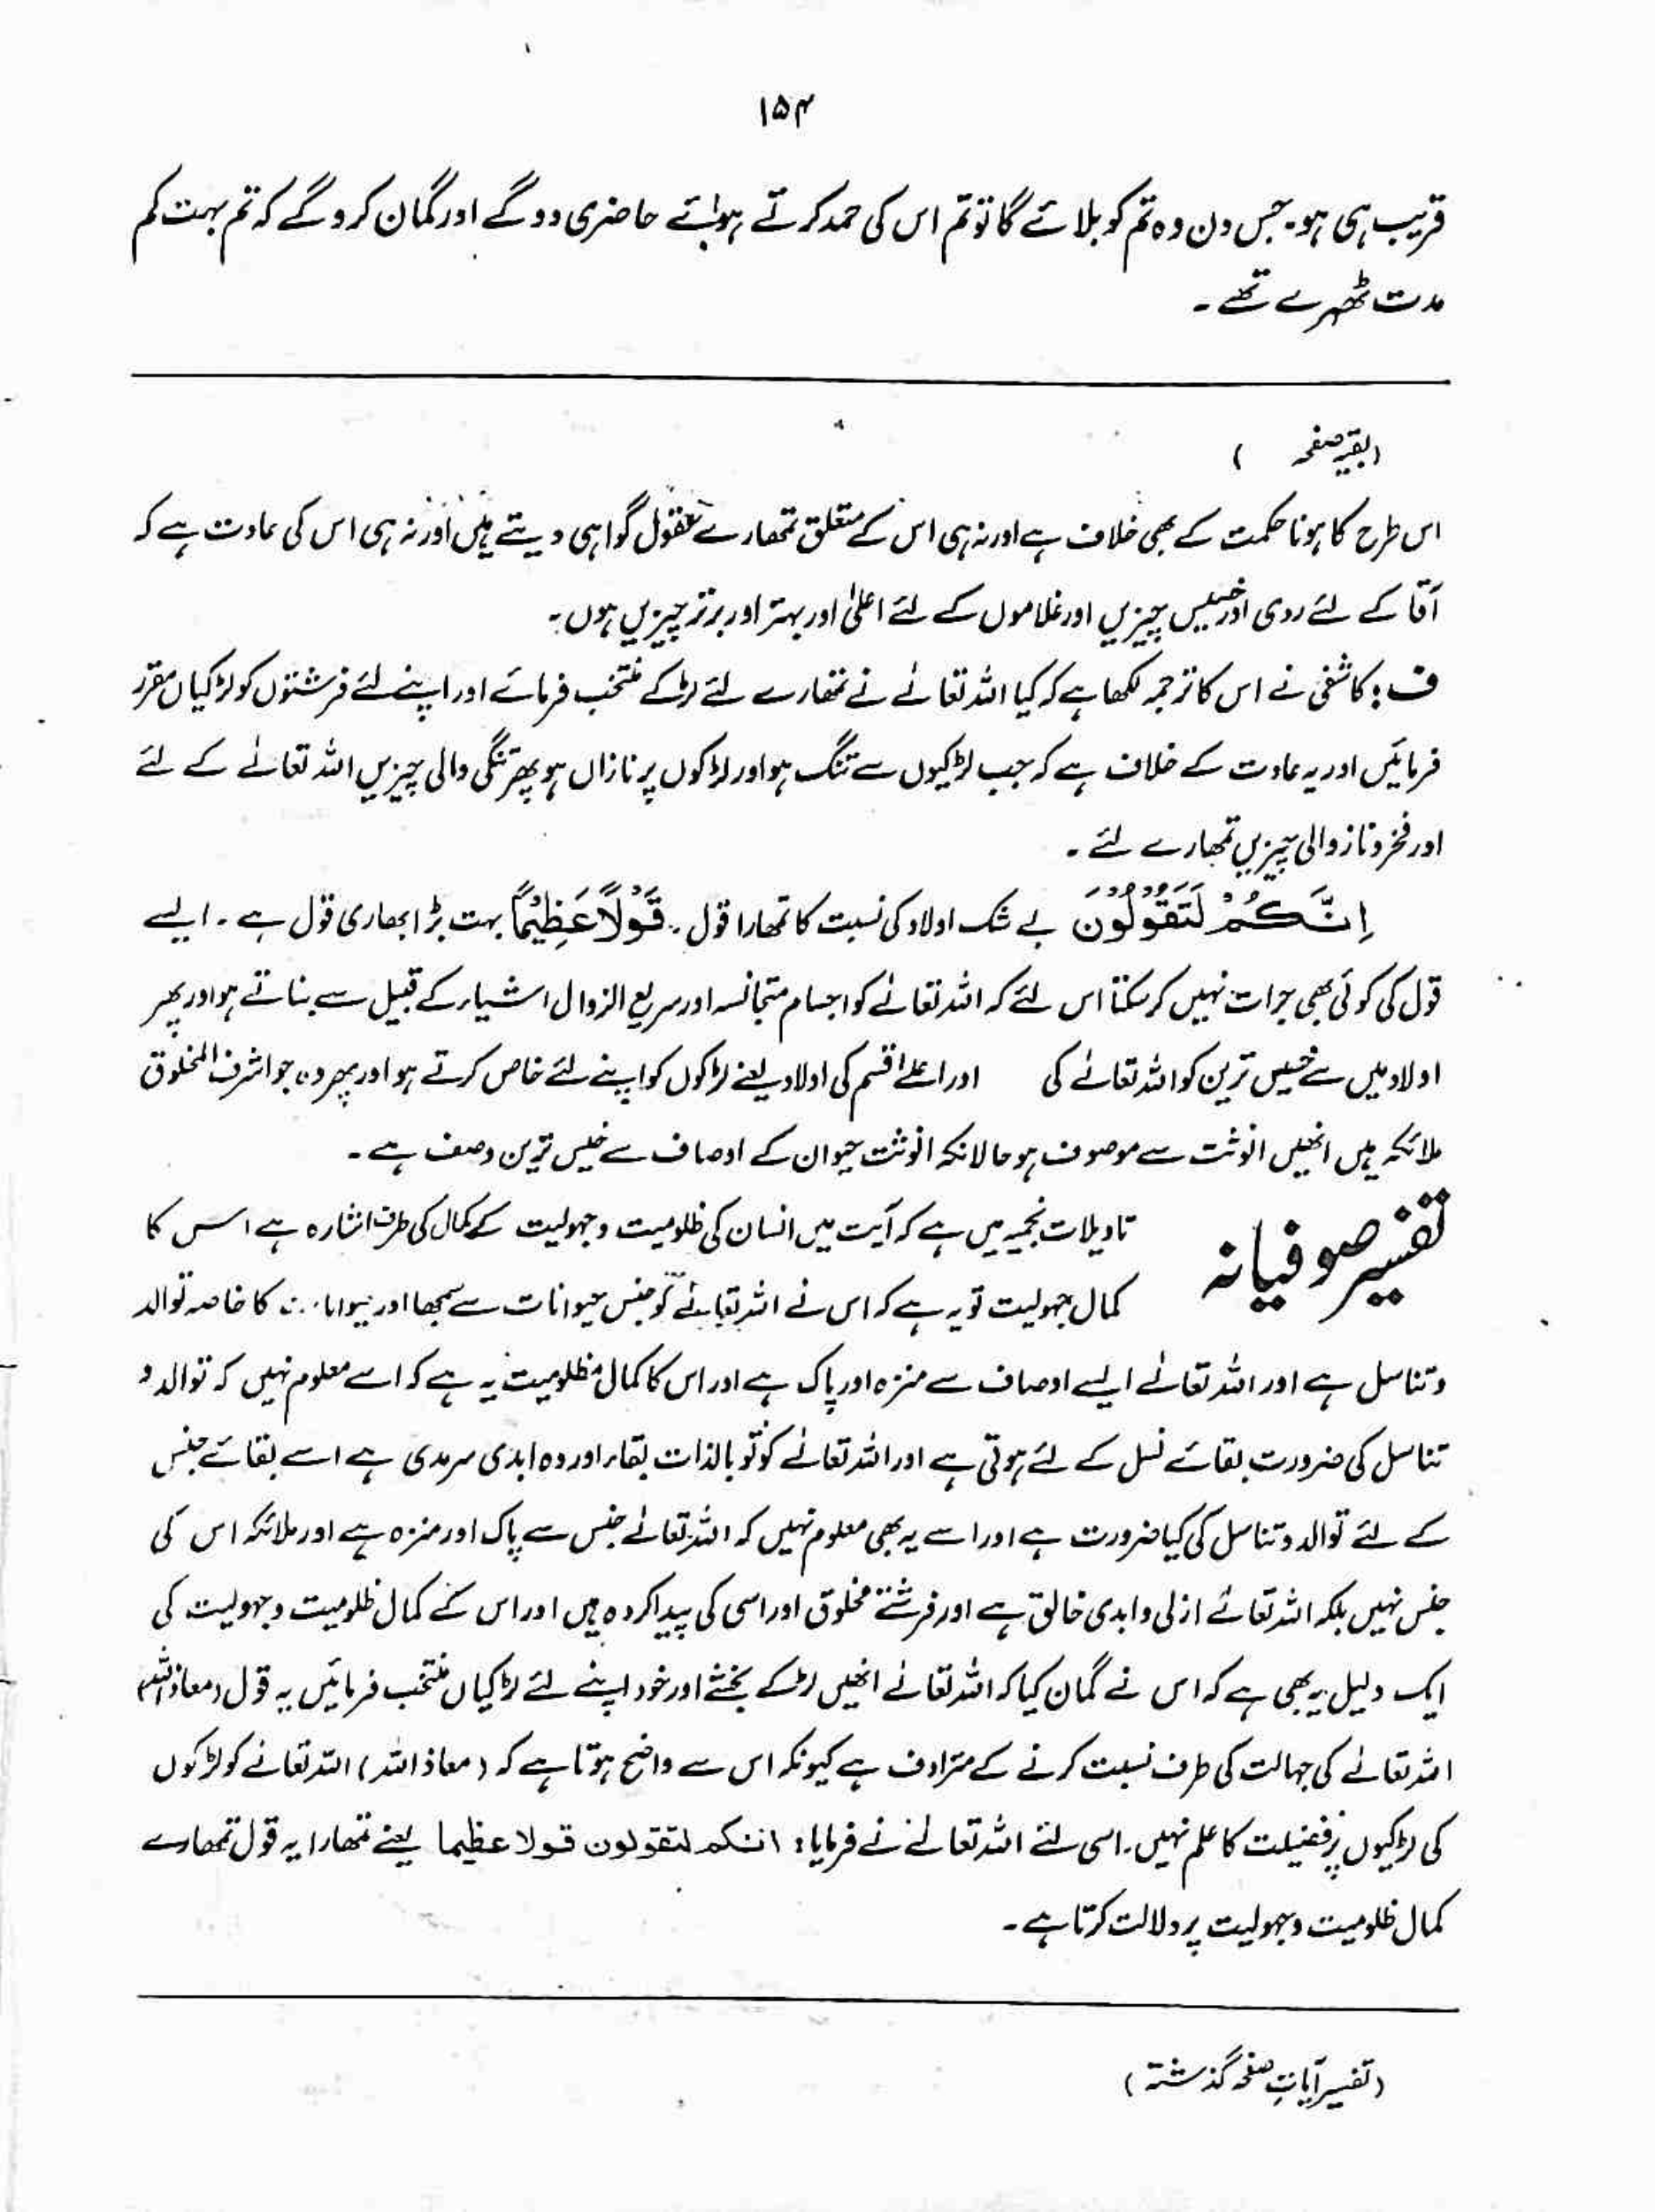 ۱۵۴
قریب ہی ہو۔ جس دن وہ تم کو بلائے گا تو تم اس کی حمد کرتے ہوئے حاضری دو گے اور گمان کرو گے کہ تم بہت کم
مدت ٹھہرے تھے۔
(بقیہ صفحہ )
اس طرح کا ہونا حکمت کے بھی خلاف ہے اور نہ ہی اس کے متعلق تمھارے عقول گواہی دیتے ہیں اور نہ ہی اس کی عادت ہے کہ
آقا کے لئے ردی اور خسیس چیزیں اور غلاموں کے لئے اعلیٰ اور بہتر اور برتر چیزیں ہوں۔
ف : کاشفی نے اس کا ترجمہ لکھا ہے کہ کیا اللہ تعالےٰ نے تمھارے لئے لڑکے منتخب فرمائے اور اپنے لئے فرشتوں کو لڑکیاں مقرر
فرمائیں اور یہ عادت کے خلاف ہے کہ جب لڑکیوں سے تنگ ہو اور لڑکوں پر نازاں ہو پھر تنگی والی چیزیں اللہ تعالےٰ کے لئے
اور فخر و ناز والی چیزیں تمھارے لئے ۔
اِنَّكُمْ لَتَقُوْلُوْنَ بے شک اولاد کی نسبت کا تمھارا قول ۔ قَوْلًا عَظِيْمًا بہت بڑا بھاری قول ہے ۔ ایسے
قول کی کوئی بھی جرات نہیں کر سکتا اس لئے کہ اللہ تعالےٰ کو اجسام متجانسہ اور سریع الزوال اشیاء کے قبیل سے بناتے ہو اور پھر
اولاد میں سے خسیس ترین کو اللہ تعالےٰ کی اور اعلےٰ قسم کی اولاد یعنے لڑکوں کو اپنے لئے خاص کرتے ہو اور پھر وہ جو اشرف المخلوق
ملائکہ ہیں انھیں انوثت سے موصوف ہو حالانکہ انوثت حیوان کے اوصاف سے خسیس ترین وصف ہے ۔
تفسیر صوفیانہ تاویلات نجمیہ میں ہے کہ آیت میں انسان کی ظلومیت و جہولیت کے کمال کی طرف اشارہ ہے اس کا
کمال جہولیت تو یہ ہے کہ اس نے اللہ تعالےٰ کو جنس حیوانات سے سمجھا اور حیوانات کا خاصہ توالد
و تناسل ہے اور اللہ تعالےٰ ایسے اوصاف سے منزہ اور پاک ہے اور اس کا کمال مظلومیت یہ ہے کہ اسے معلوم نہیں کہ توالد و
تناسل کی ضرورت بقائے نسل کے لئے ہوتی ہے اور اللہ تعالےٰ کو تو بالذات بقاء اور وہ ابدی سرمدی ہے اسے بقائے جنس
کے لئے توالد و تناسل کی کیا ضرورت ہے اور اسے یہ بھی معلوم نہیں کہ اللہ تعالےٰ جنس سے پاک اور منزہ ہے اور ملائکہ اس کی
جنس نہیں بلکہ اللہ تعالےٰ ازلی و ابدی خالق ہے اور فرشتے مخلوق اور اسی کی پیدا کردہ ہیں اور اس کے کمال ظلومیت و جہولیت کی
ایک دلیل یہ بھی ہے کہ اس نے گمان کیا کہ اللہ تعالےٰ انھیں لڑکے بخشے اور خود اپنے لئے لڑکیاں منتخب فرمائیں یہ قول (معاذ اللہ)
اللہ تعالےٰ کی جہالت کی طرف نسبت کرنے کے مترادف ہے کیونکہ اس سے واضح ہوتا ہے کہ (معاذ اللہ) اللہ تعالےٰ کو لڑکوں
کی لڑکیوں پر فضیلت کا علم نہیں۔ اسی لئے اللہ تعالےٰ نے فرمایا : انکم لتقولون قولا عظیما یعنے تمھارا یہ قول تمھارے
کمال ظلومیت و جہولیت پر دلالت کرتا ہے ۔
(تفسیر آیات صفحہ گذشتہ)